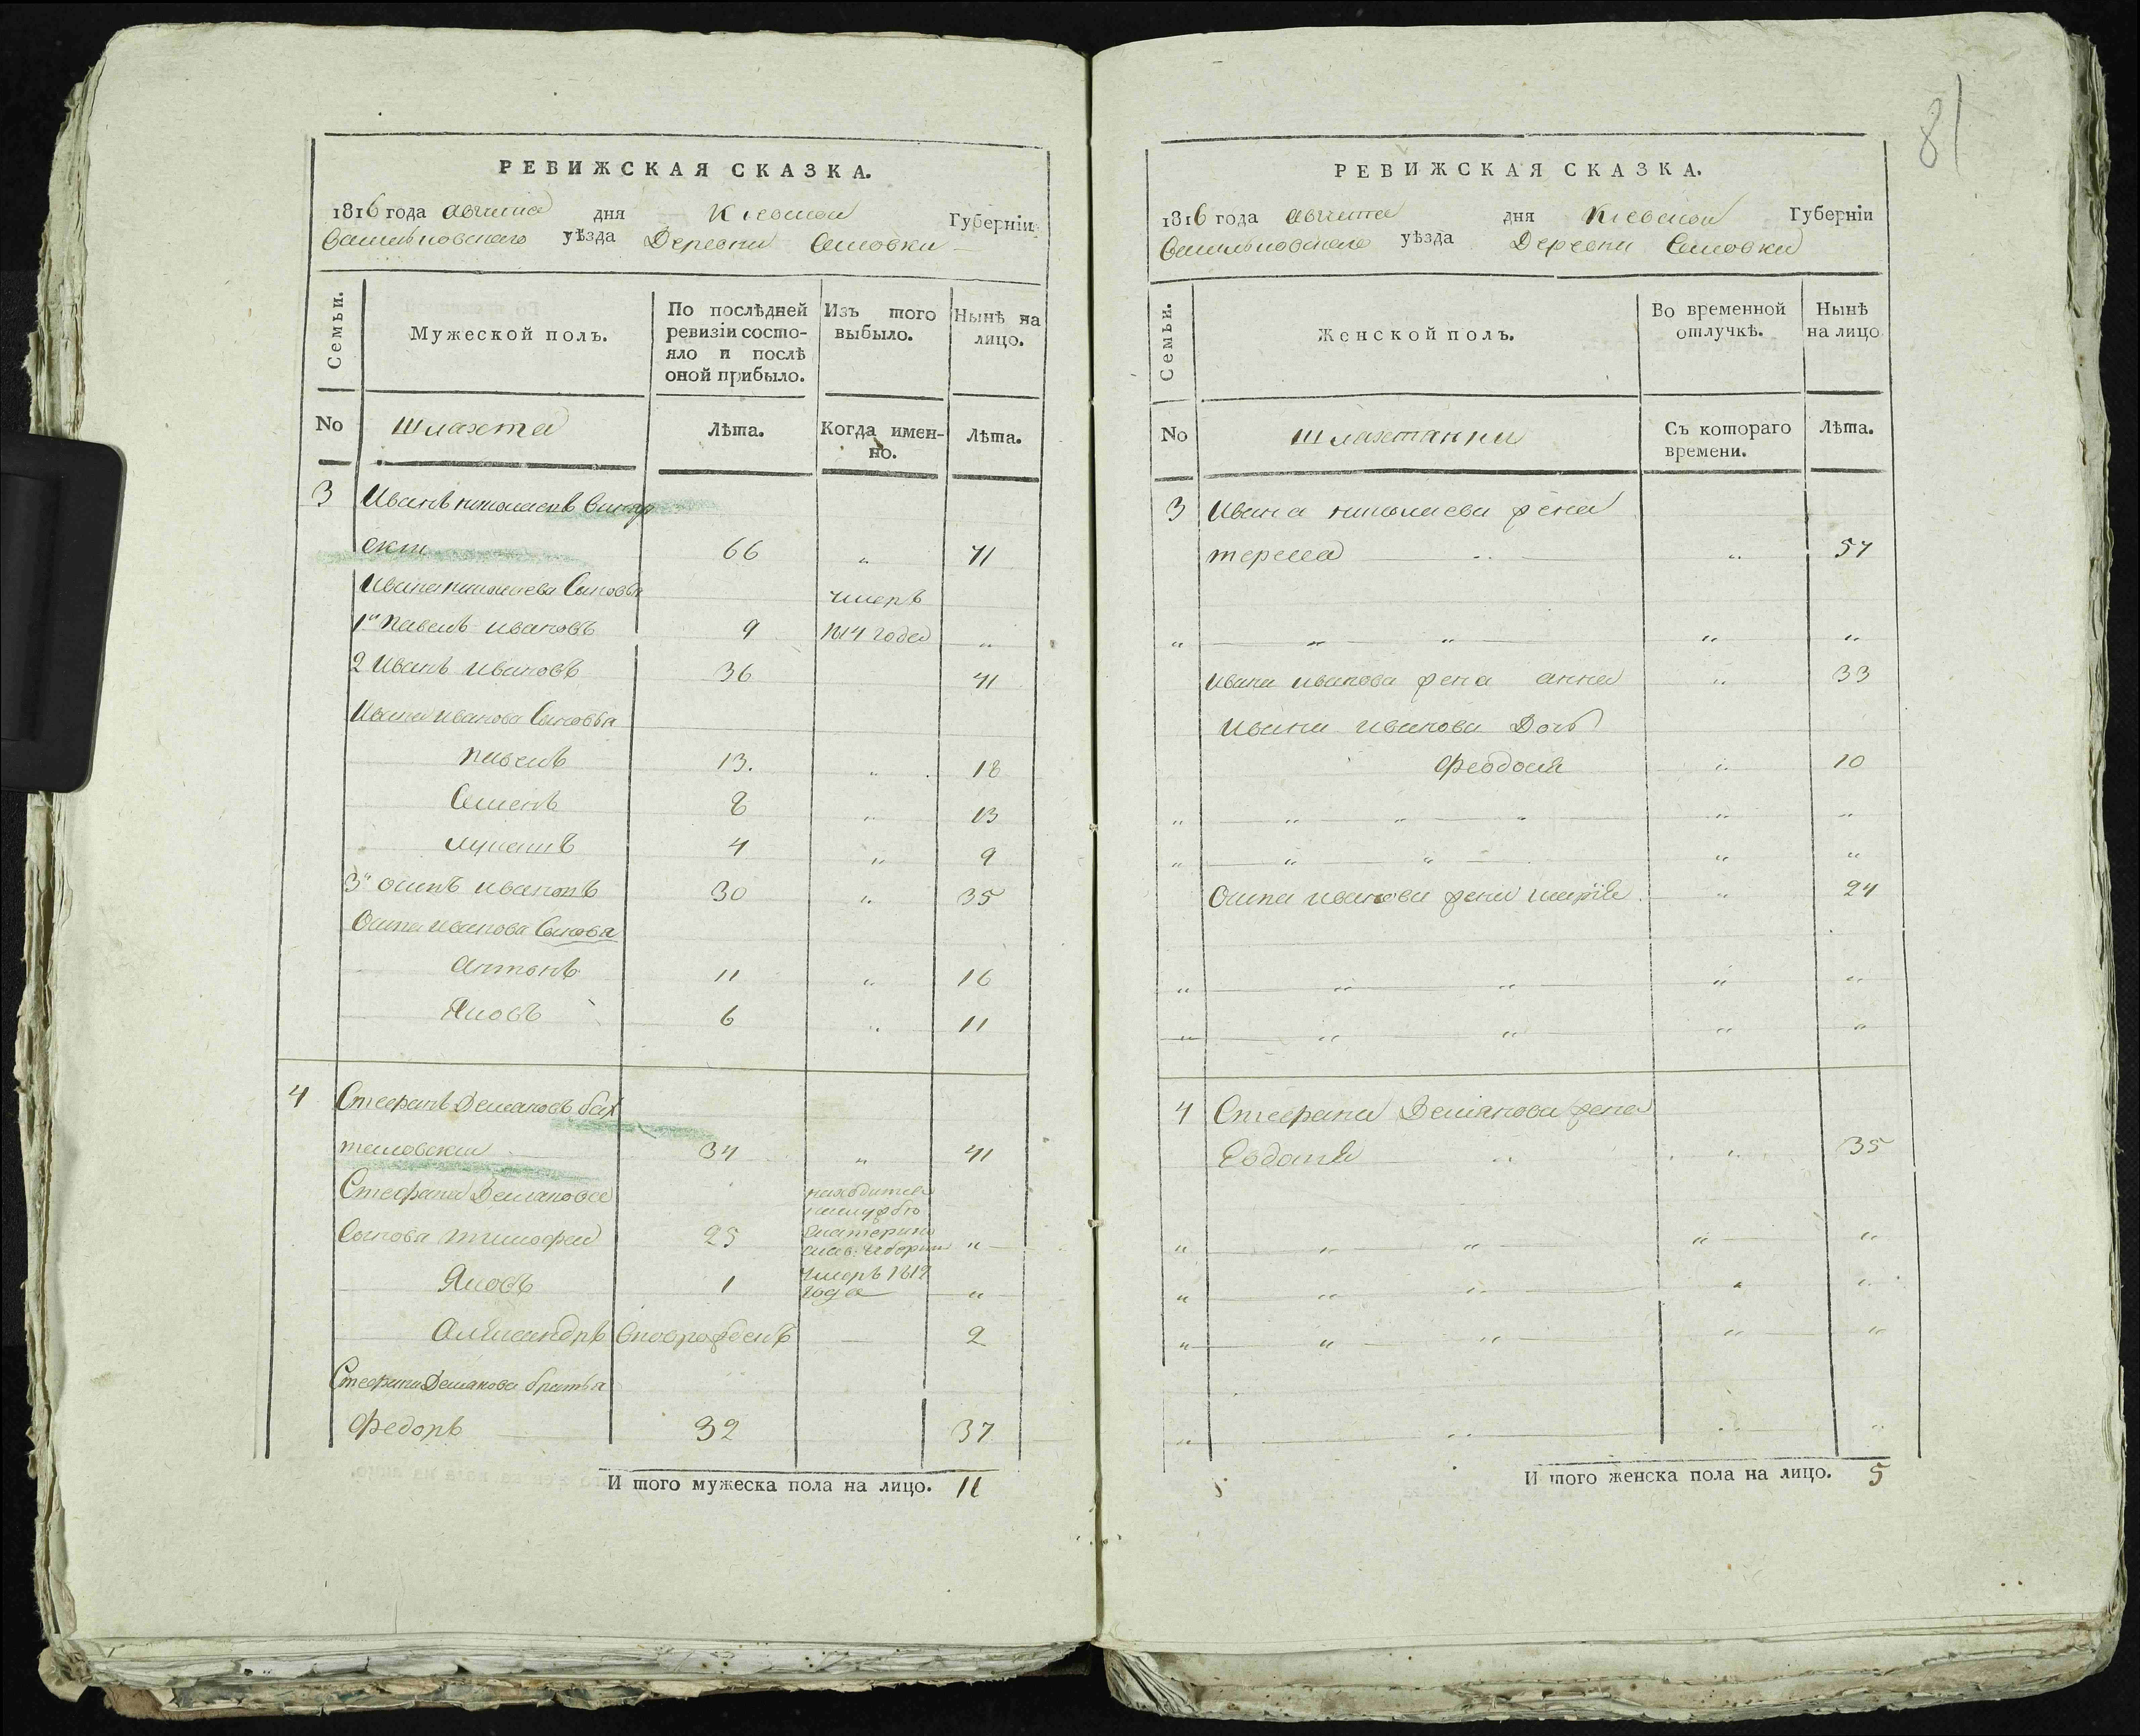 РЕВИЖСКАЯ СКАЗКА.
1816 года августа дня Киевской Губернїи
Васильковскаго уѣзда Деревни
Семьи.
Мужеской полъ.
По послѣдней ревизїи состо-
яло и послѣ
оной прибыло.
Изъ того
выбыло.
Нынѣ на
лицо.
No Шляхта Лѣта. Когда имен-
но. Лѣта.
3 Иванъ николаевъ
66 „ 71
Ивана николаева Сыновья
умеръ
1й павелъ ивановъ 9 1814 года „
2 Иванъ Ивановъ 36 41
Ивана иванова Сыновья
павелъ 13. „ 18
Семенъ 8 „ 13
лукашъ 4 „ 9
3й осипъ ивановъ 30 „ 35
Осипа иванова Сынова
Антонъ 11 „ 16
Яковъ 6 „ 11
4 Стефанъ Демяновъ
34 „ 41
Стефана Демянова
Сынова тимофей 25 находится
Екатерино
слав: губернии „
Яковъ 1 Умеръ 1812
года „
Александръ вновророжденъ — 2
Стефана Демянова братья
Федоръ 32 37
И того мужеска пола на лицо. 11
81
РЕВИЖСКАЯ СКАЗКА.
1816 года августа дня Киевской Губернїи
Васильковскаго уѣзда Деревни
Семьи.
Женской полъ.
Во временной
отлучкѣ.
Нынѣ
на лицо
No шляхтянки Съ котораго
времени. Лѣта.
3 Ивана николаева жена
тереса „ „ 57
„ „ „ „ „
ивана иванова жена анна „ 33
Ивана иванова Дочь
Феодосия „ 10
„ „ „ „ „ „
„ „ „ „ „
Осипа иванова жена марїя „ 24
„ „ „ „ „
„ „ „ „ „
4 Стефана Демянова жена
Евдокия „ „ 35
„ „ „ „ „
„ „ „ „ „
„ „ „ „ „
„ „ „ „
И того женска пола на лицо. 5